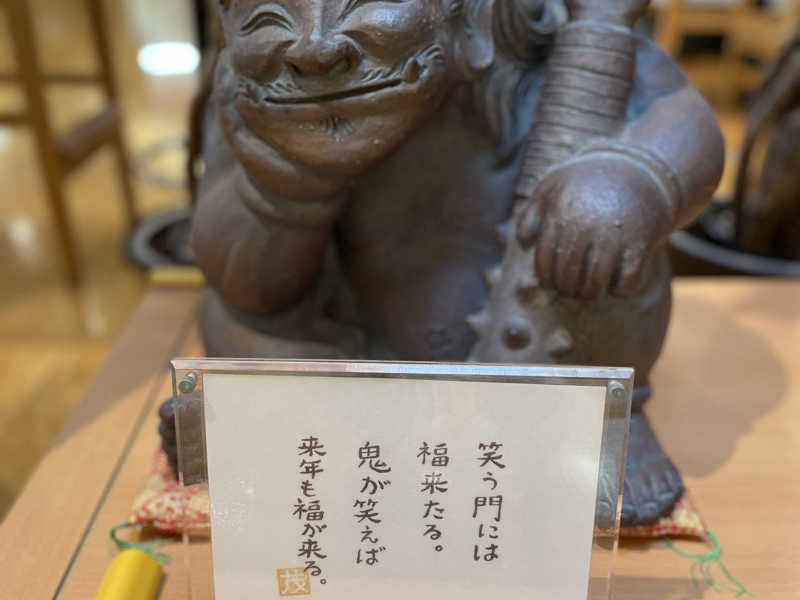 笑う門には
福来たる。
鬼が笑えば
来年も福が来る。
技